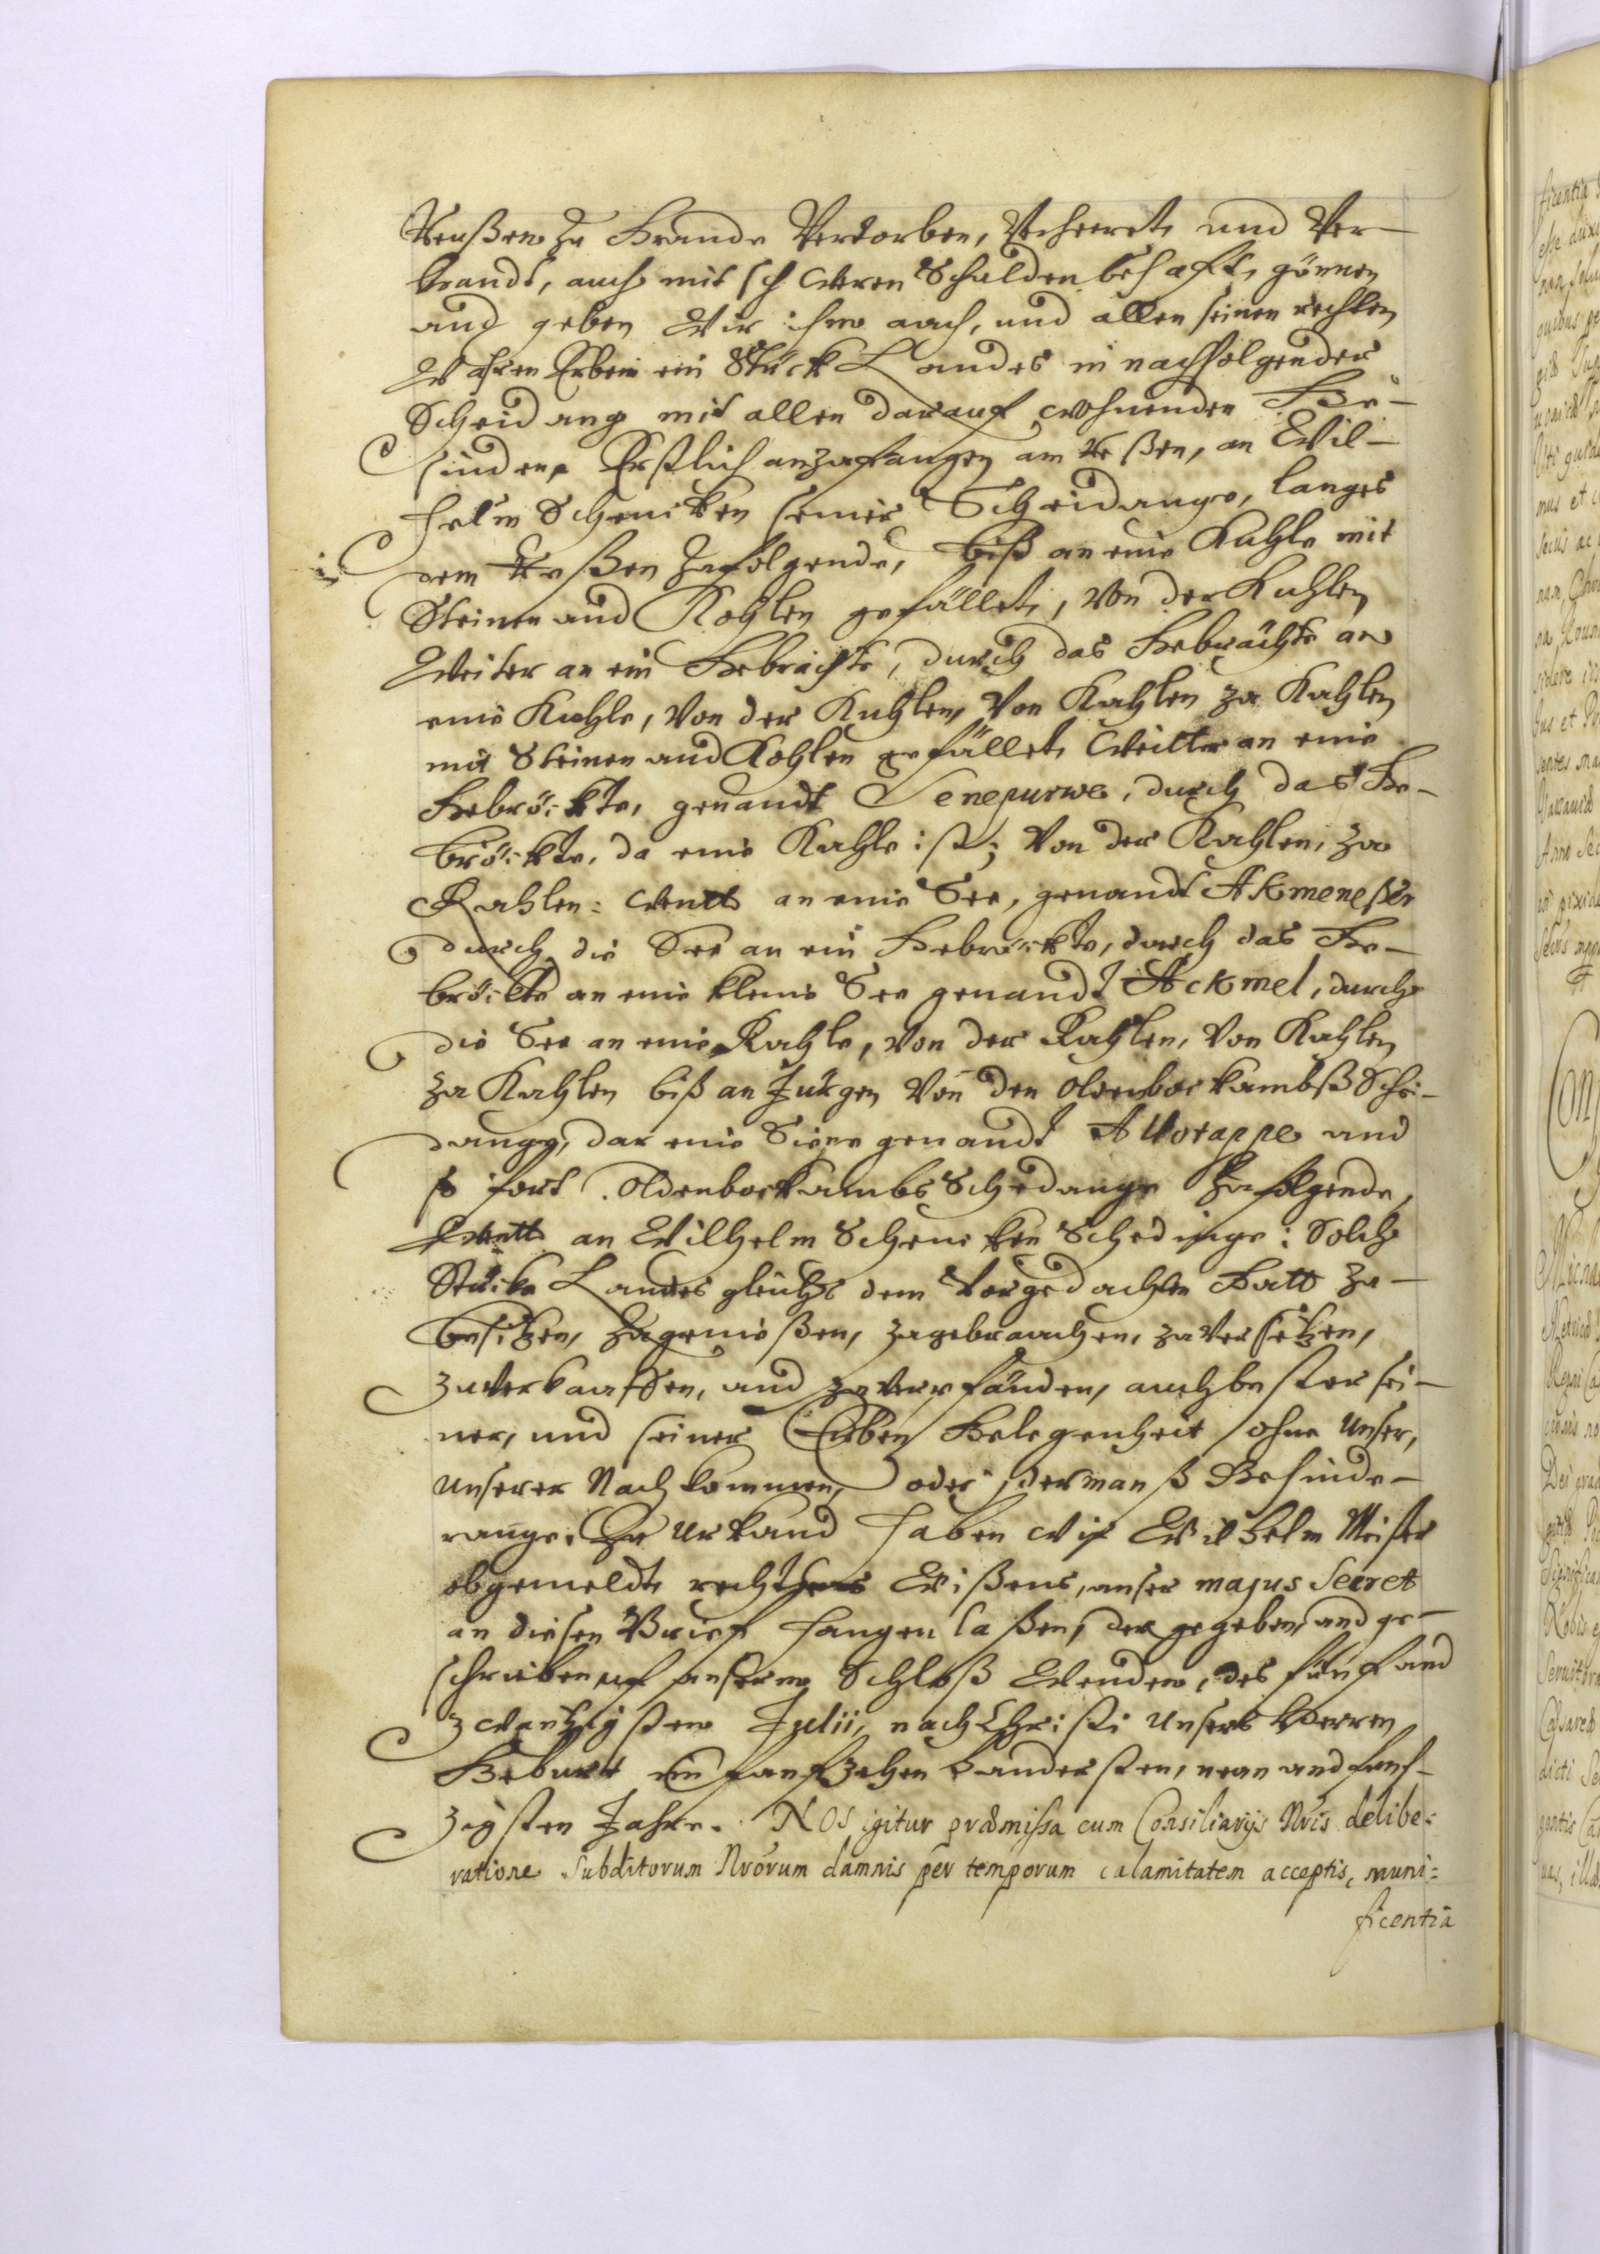 Reußen zu Grunde Verdorben, Verheeret, und Ver-
brandt, auch mit schweren Schulden behafft, gönnen
und geben Wir ihm auch, und allen seinen rechten
Wahren Erben ein Stück Landes in nachfolgender
Scheidung mit allen darauf wohnenden Ge-
sinden, Erstlich anzufangen am, an Wil-
helm Schencken seiner Scheidunge, langes
dem zufolgende, biß an eine Kuhle mit
Steinen und Kohlen gefüllet, Von der Kuhlen
Weiter an ein Gebröchte, durch das Gebröchte an
eine Kuhle, Von der Kuhlen, Von Kuhlen zu Kuhlen
mit Steinen und Kohlen gefüllet, Weitter an eine
Gebröckte, genandt Senepurwe, durch das Ge-
bröckte, da eine Kuhle ist; Von der Kuhlen, zu
Kuhlen: wentt an eine See, genandt Akmeneßer
durch die See an ein Gebröckte, durch das Ge-
bröckte an eine kleine See genandt Ackmel, durch
die See an eine Kuhle, Von der Kuhlen, Von Kuhlen
zu Kuhlen biß an Jürgen Von den Oldenbockumbß Schei-
dunge, dar eine Siepe genandt Allotappe und
so fort Oldenbockumbs Schedunge zufolgende,
wentt an Wilhelm Schencken Schedinge: Solch
Stücke Landes gleichs dem Vorgedachten Gutt zu-
besitzen, zugenießen, zugebrauchen, zuversetzen,
zuverkauffen, und zuverpfänden, auch bester sei-
ner, und seiner Erben Gelegenheit ohne Unser,
Unserer Nachkommen, oder jdermanß Behinde-
runge. Zu Urkund haben wir Wilhelm Meister
obgemeldt, rechtens Wißens, unser majus Secret
an diesen Brief hangen laßen, der gegeben, und ge-
schrieben uf unserm Schloß Wenden, des fünf und
zwantzigsten Julii, nach Christi Unsers Herren
Geburt im funfzehen hundersten, neun und funf-
zigsten Jahre. NOS igitur præmissa cum Consiliarijs Nris delibe-
ratione Subditorum Nrorum damnis per temporum calamitatem acceptis, muni-
ficentia